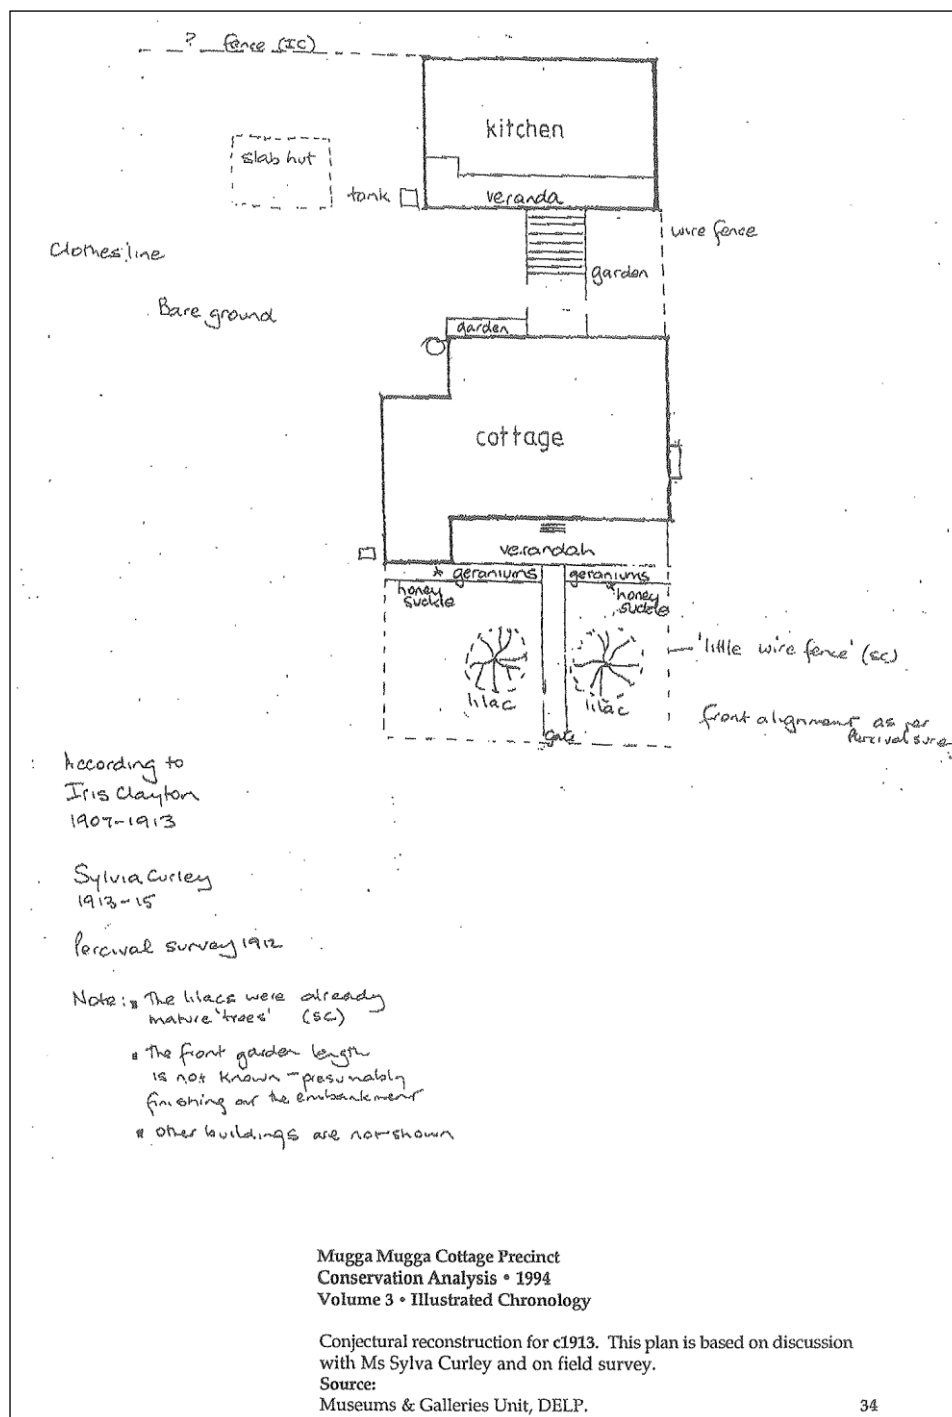 ? fence (IC)
kitchen
slab hut
tank
veranda
wire fence
Clothes line
garden
Bare ground
garden
cottage
verandah
* geraniums
geraniums
honey
suckle
* honey
suckle
'little wire fence' (SC)
lilac
lilac
front alignment as per
Percival
gate
According to
Iris Clayton
1907-1913
Sylvia Curley
1913-15
Percival survey 1912
Note: * The lilacs were already
mature 'trees' (SC)
* The front garden length
is not known - presumably
finishing at the embankment
* other buildings are not shown
Mugga Mugga Cottage Precinct
Conservation Analysis • 1994
Volume 3 • Illustrated Chronology
Conjectural reconstruction for c1913. This plan is based on discussion
with Ms Sylva Curley and on field survey.
Source:
Museums & Galleries Unit, DELP.
34